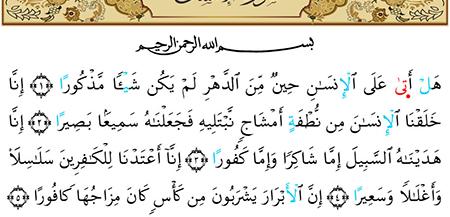 بِسْمِ اللَّهِ الرَّحْمَٰنِ الرَّحِيمِ
هَلْ أَتَىٰ عَلَى الْإِنسَٰنِ حِينٌ مِّنَ الدَّهْرِ لَمْ يَكُن شَيْـًٔا مَّذْكُورًا ﴿١﴾ إِنَّا
خَلَقْنَا الْإِنسَٰنَ مِن نُّطْفَةٍ أَمْشَاجٍ نَّبْتَلِيهِ فَجَعَلْنَٰهُ سَمِيعًۢا بَصِيرًا ﴿٢﴾ إِنَّا
هَدَيْنَٰهُ السَّبِيلَ إِمَّا شَاكِرًا وَإِمَّا كَفُورًا ﴿٣﴾ إِنَّآ أَعْتَدْنَا لِلْكَٰفِرِينَ سَلَٰسِلَا۟
وَأَغْلَٰلًا وَسَعِيرًا ﴿٤﴾ إِنَّ الْأَبْرَارَ يَشْرَبُونَ مِن كَأْسٍ كَانَ مِزَاجُهَا كَافُورًا ﴿٥﴾